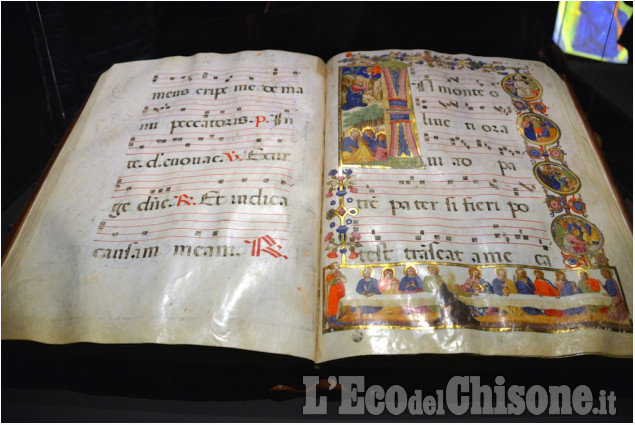 meus eripe me de ma
nu peccatoris. p. In
te. d. euouae. V. Exur
ge dñe. R. Et iudica
causam meam. R.
In monte o
liue ti ora
uit ad pa
trē pa ter si fieri po
test trāseat a me ca
L'EcodelChisone.it